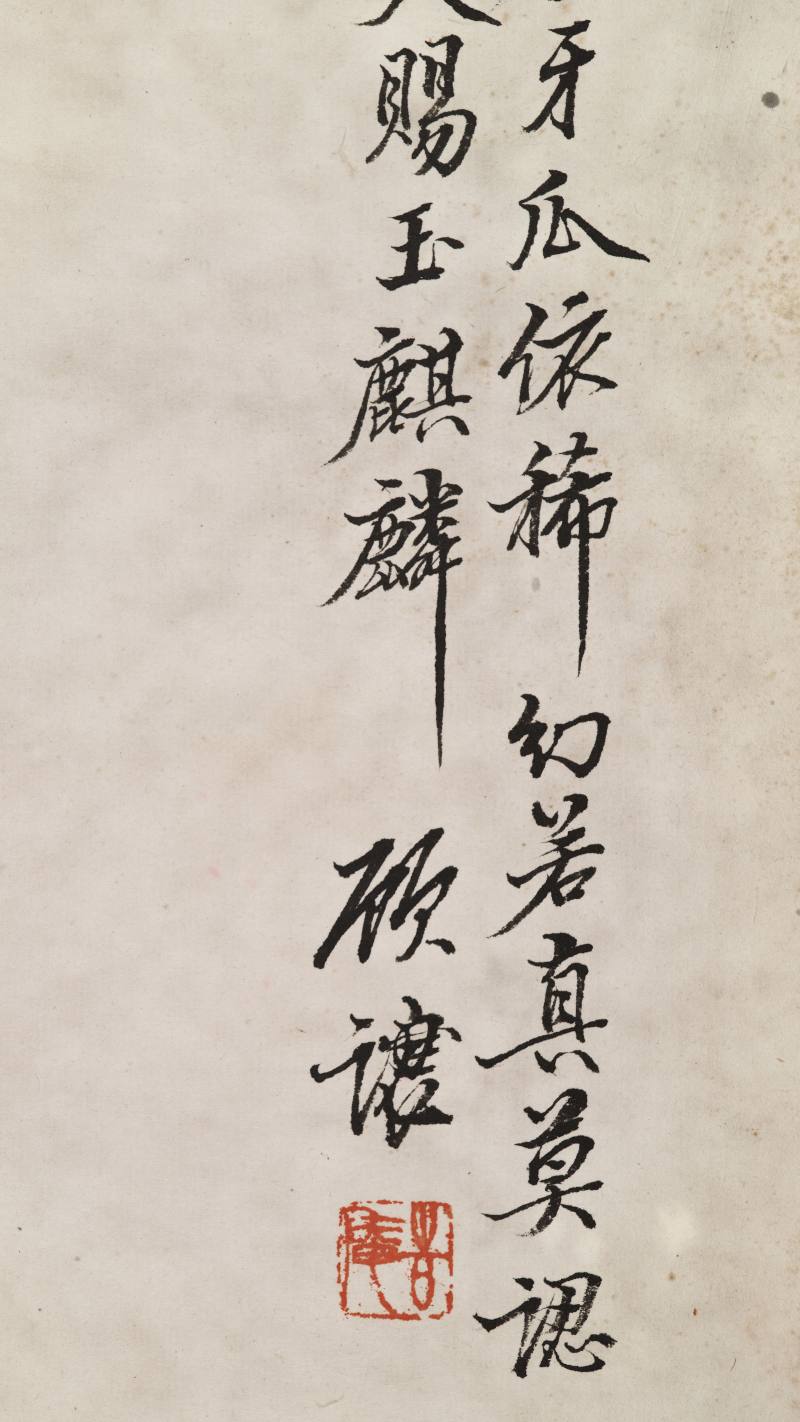 牙爪依稀幻若真莫認
賜玉麒麟 顧讓